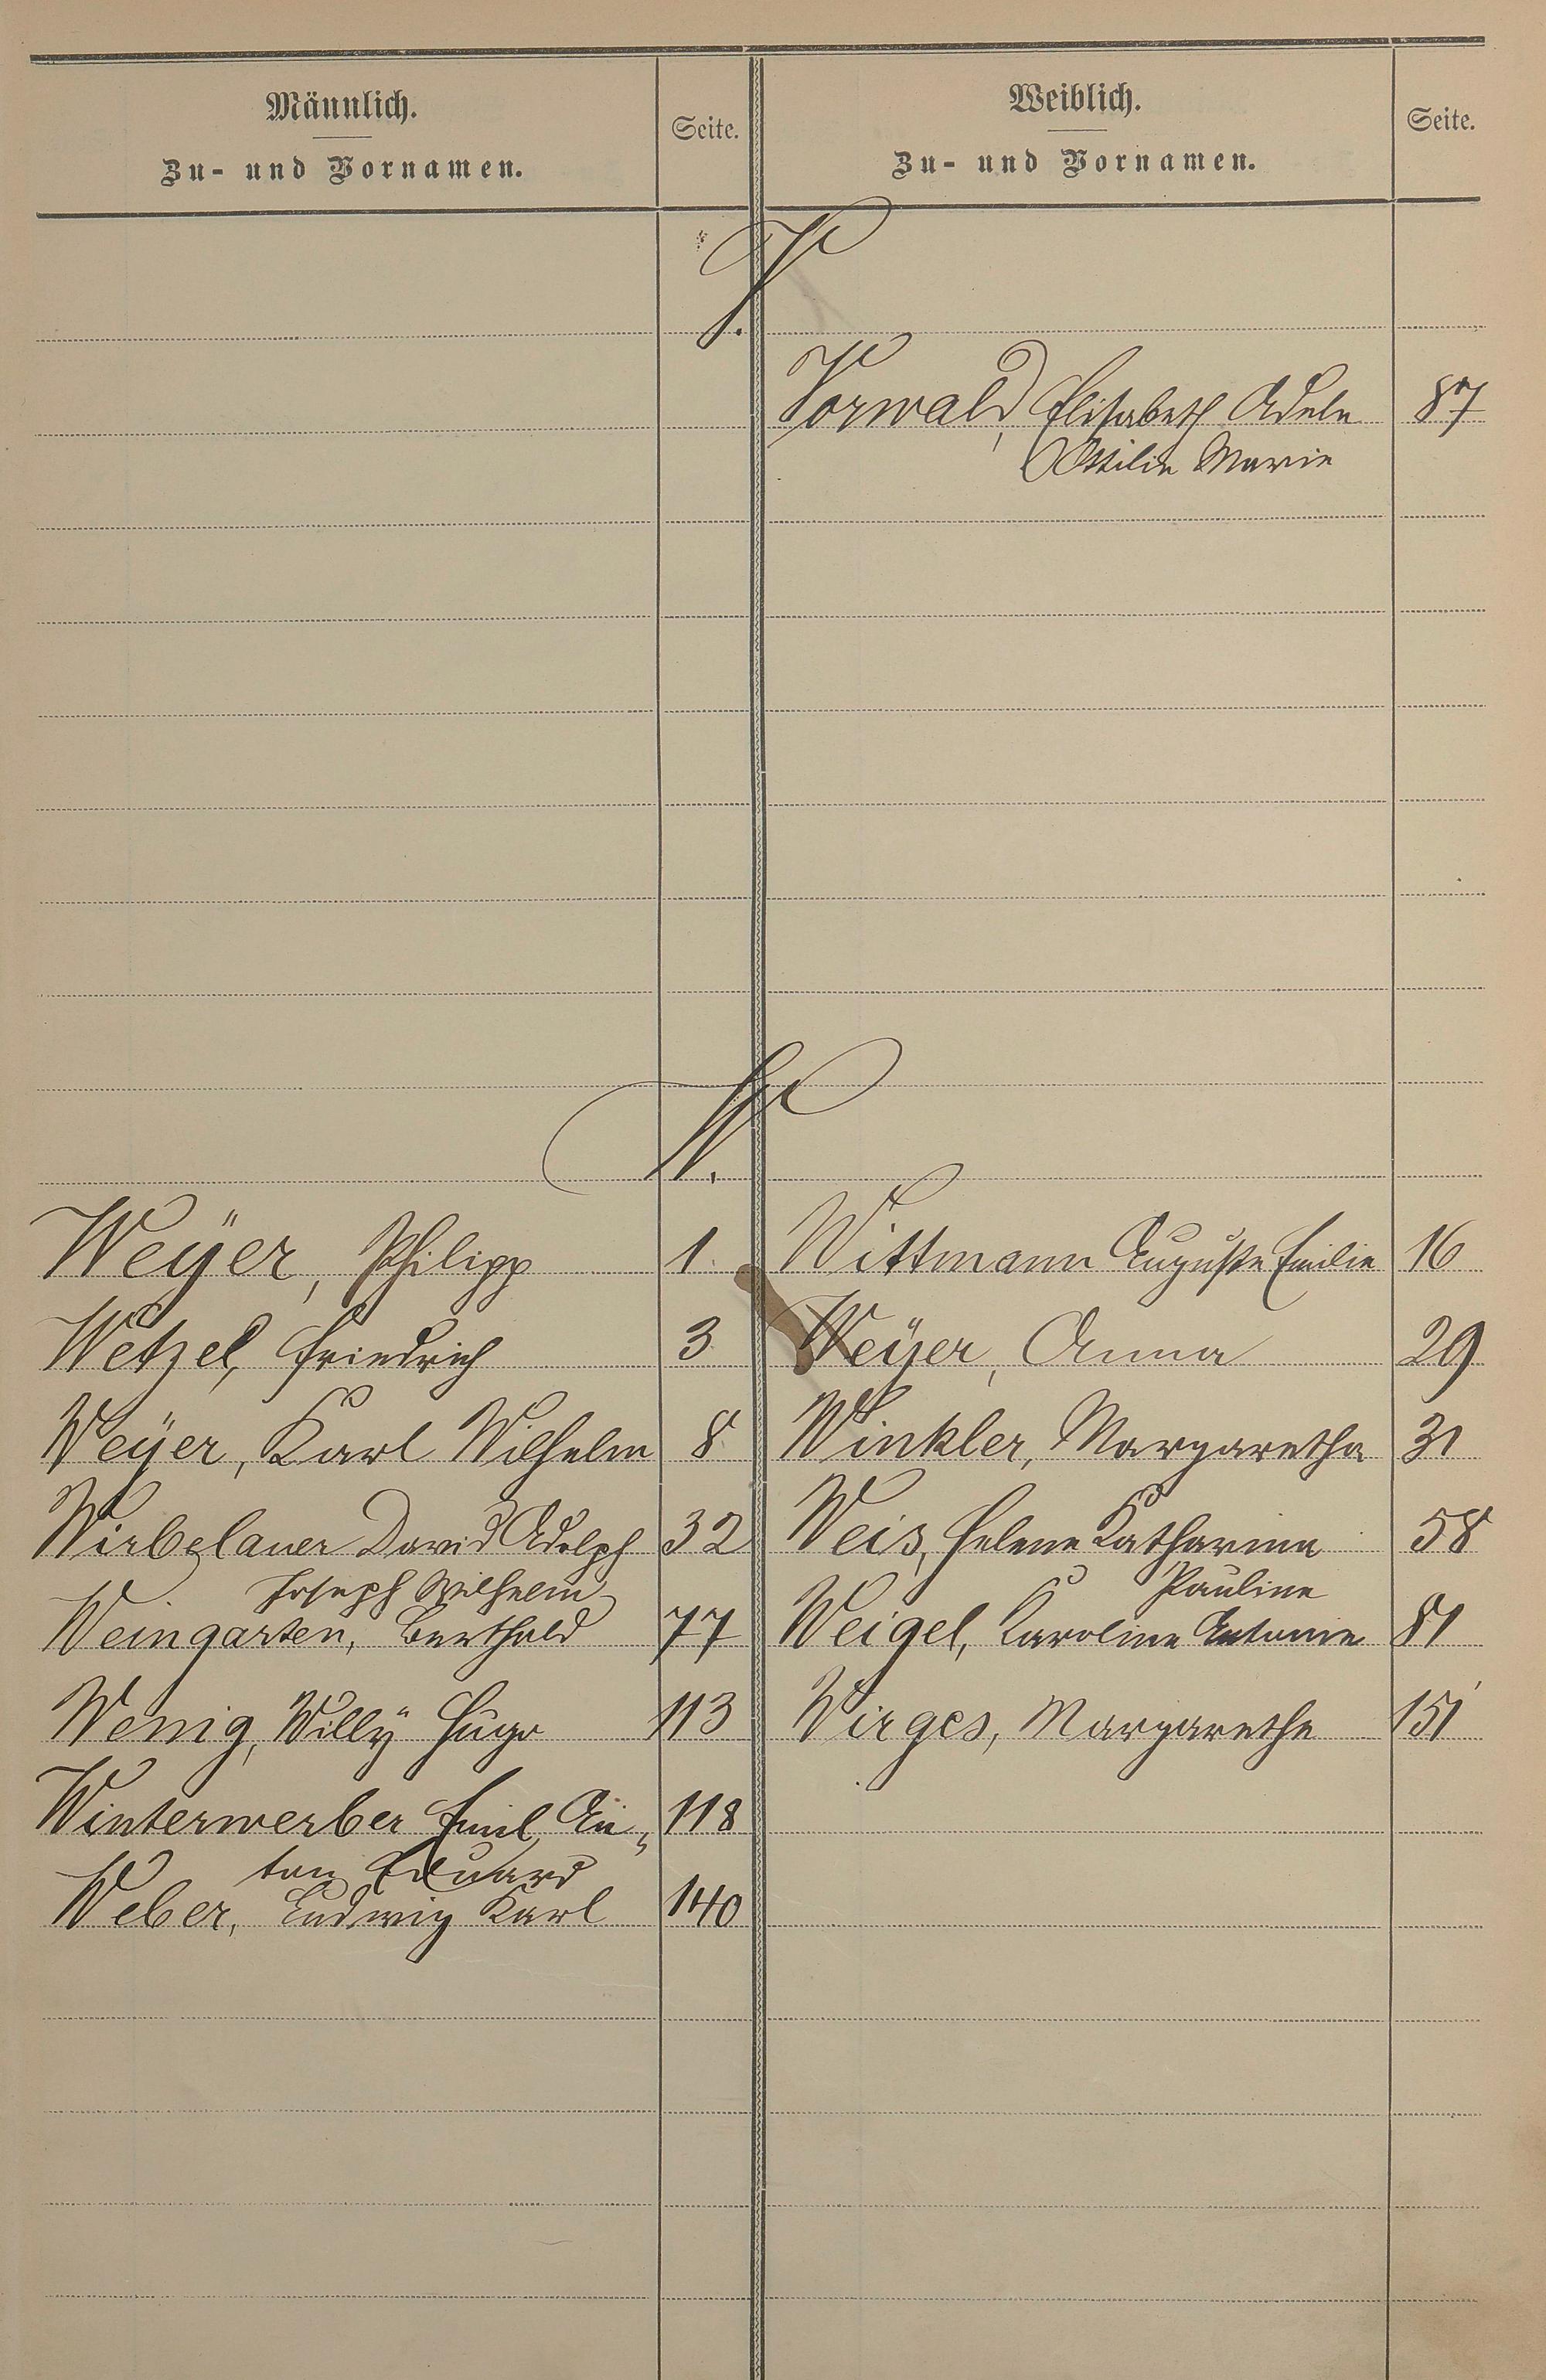 Männlich.
Zu- und Vornamen.
Seite.
Weiblich.
Zu- und Vornamen.
Seite.
V.
Vorwald, Elisabeth Adele 87
Ottilie Marie
W.
Weÿer, Philipp 1. Wittmann Auguste Emilie 16
Wetzel, Friedrich 3 Weÿer, Anna 29
Weÿer, Karl Wilhelm 8 Winkler, Margaretha 31
Wirbelauer David Adolph 32 Weis, Helene Katharina 58
Joseph Wilhelm Pauline
Weingarten, Berthold 77 Weigel, Karoline Antonie 81
Wenig, Willÿ Hugo 113 Virges, Margarethe 151
Winterwerber Emil, An- 118
ton Eduard
Weber, Ludwig Karl 140